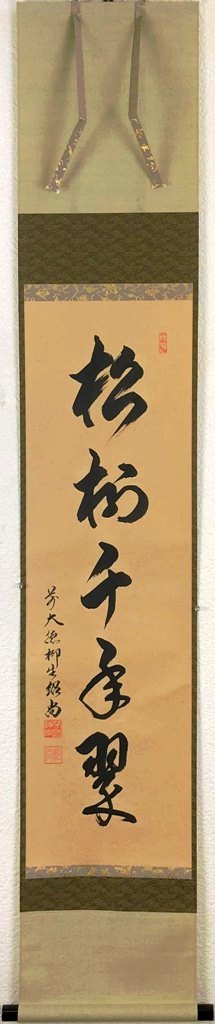 松樹千年翠
前大徳柳生紹尚